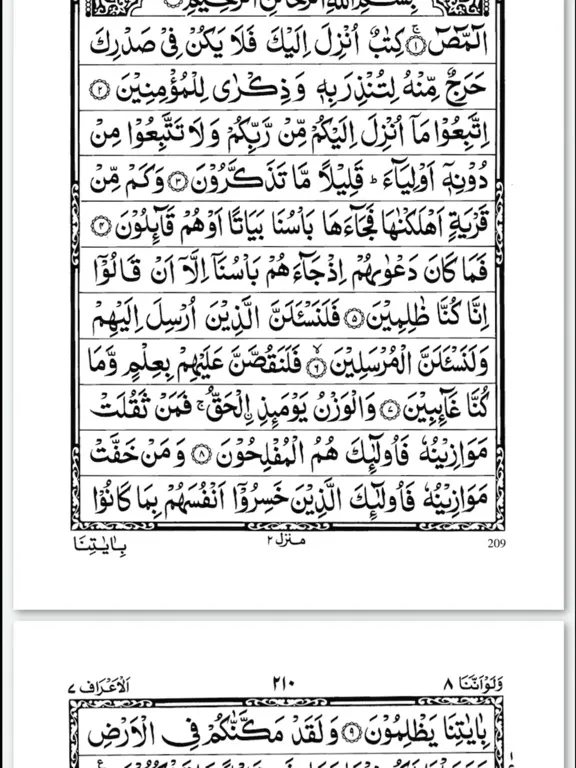 بِسْمِ اللهِ الرَّحْمٰنِ الرَّحِيْمِ
الٓمّٓصٓ ۝١ كِتٰبٌ اُنْزِلَ اِلَيْكَ فَلَا يَكُنْ فِىْ صَدْرِكَ
حَرَجٌ مِّنْهُ لِتُنْذِرَ بِهٖ وَ ذِكْرٰى لِلْمُؤْمِنِيْنَ ۝٢
اِتَّبِعُوْا مَاۤ اُنْزِلَ اِلَيْكُمْ مِّنْ رَّبِّكُمْ وَلَا تَتَّبِعُوْا مِنْ
دُوْنِهٖۤ اَوْلِيَآءَ ؕ قَلِيْلًا مَّا تَذَكَّرُوْنَ ۝٣ وَكَمْ مِّنْ
قَرْيَةٍ اَهْلَكْنٰهَا فَجَآءَهَا بَاْسُنَا بَيَاتًا اَوْهُمْ قَآئِلُوْنَ ۝٤
فَمَا كَانَ دَعْوٰىهُمْ اِذْجَآءَهُمْ بَاْسُنَاۤ اِلَّاۤ اَنْ قَالُوْۤا
اِنَّا كُنَّا ظٰلِمِيْنَ ۝٥ فَلَنَسْئَلَنَّ الَّذِيْنَ اُرْسِلَ اِلَيْهِمْ
وَلَنَسْئَلَنَّ الْمُرْسَلِيْنَ ۝٦ۙ فَلَنَقُصَّنَّ عَلَيْهِمْ بِعِلْمٍ وَّمَا
كُنَّا غَآئِبِيْنَ ۝٧ وَالْوَزْنُ يَوْمَئِذِ ۨالْحَقُّ ۚ فَمَنْ ثَقُلَتْ
مَوَازِيْنُهٗ فَاُولٰٓئِكَ هُمُ الْمُفْلِحُوْنَ ۝٨ وَ مَنْ خَفَّتْ
مَوَازِيْنُهٗ فَاُولٰٓئِكَ الَّذِيْنَ خَسِرُوْۤا اَنْفُسَهُمْ بِمَا كَانُوْا
بِاٰيٰتِنَا منزل ٢ 209
وَلَوْاَنَّنَا ٨ ٢١٠ اَلْاَعْرَاف ٧
بِاٰيٰتِنَا يَظْلِمُوْنَ ۝٩ وَ لَقَدْ مَكَّنّٰكُمْ فِى الْاَرْضِ